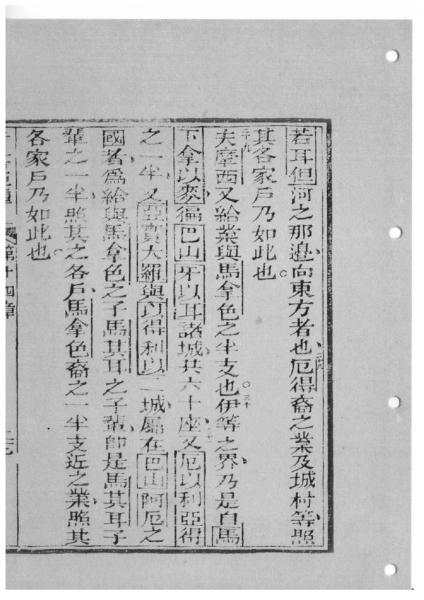 若耳但河之那邊向東方者也厄得裔之業及城村等照
其各家戶乃如此也
夫摩西又給業與馬拿色之半支也伊等之界乃是自馬
下拿以麥徧巴山牙以耳諸城共六十座又厄以利亞得
之一半又亞實大羅與以得利以二城屬在巴山阿厄之
國者爲給與馬拿色之子馬其耳之子輩即是馬其耳子
輩之一半照其之各戶馬拿色裔之一半支近之業照其
各家戶乃如此也
第十四章